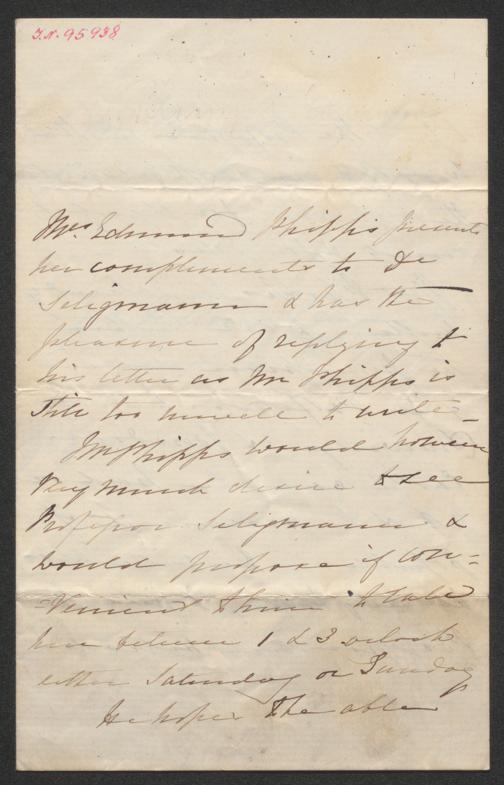 I.N. 95938
Mrs Edmund Phipps presents
her compliments to Dr
Seligmann & has the
pleasure of replying to
his letter as Mr Phipps is
still too unwell to write –
Mr Phipps would however
very much desire to see
Professor Seligmann &
would propose if con=
=venient to him to call
here between 1 & 3 oclock
either Saturday or Sunday
He hopes to be able